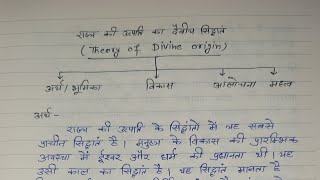 राज्य की उत्पत्ति का दैवीय सिद्धांत
(Theory of Divine origin)
अर्थ/भूमिका विकास आलोचना महत्व
अर्थ-
राज्य की उत्पत्ति के सिद्धांतों में यह सबसे
प्राचीन सिद्धांत है। मनुष्य के विकास की प्रारम्भिक
अवस्था में ईश्वर और धर्म की प्रधानता थी। यह
उसी काल का सिद्धांत है। यह सिद्धांत मानता है